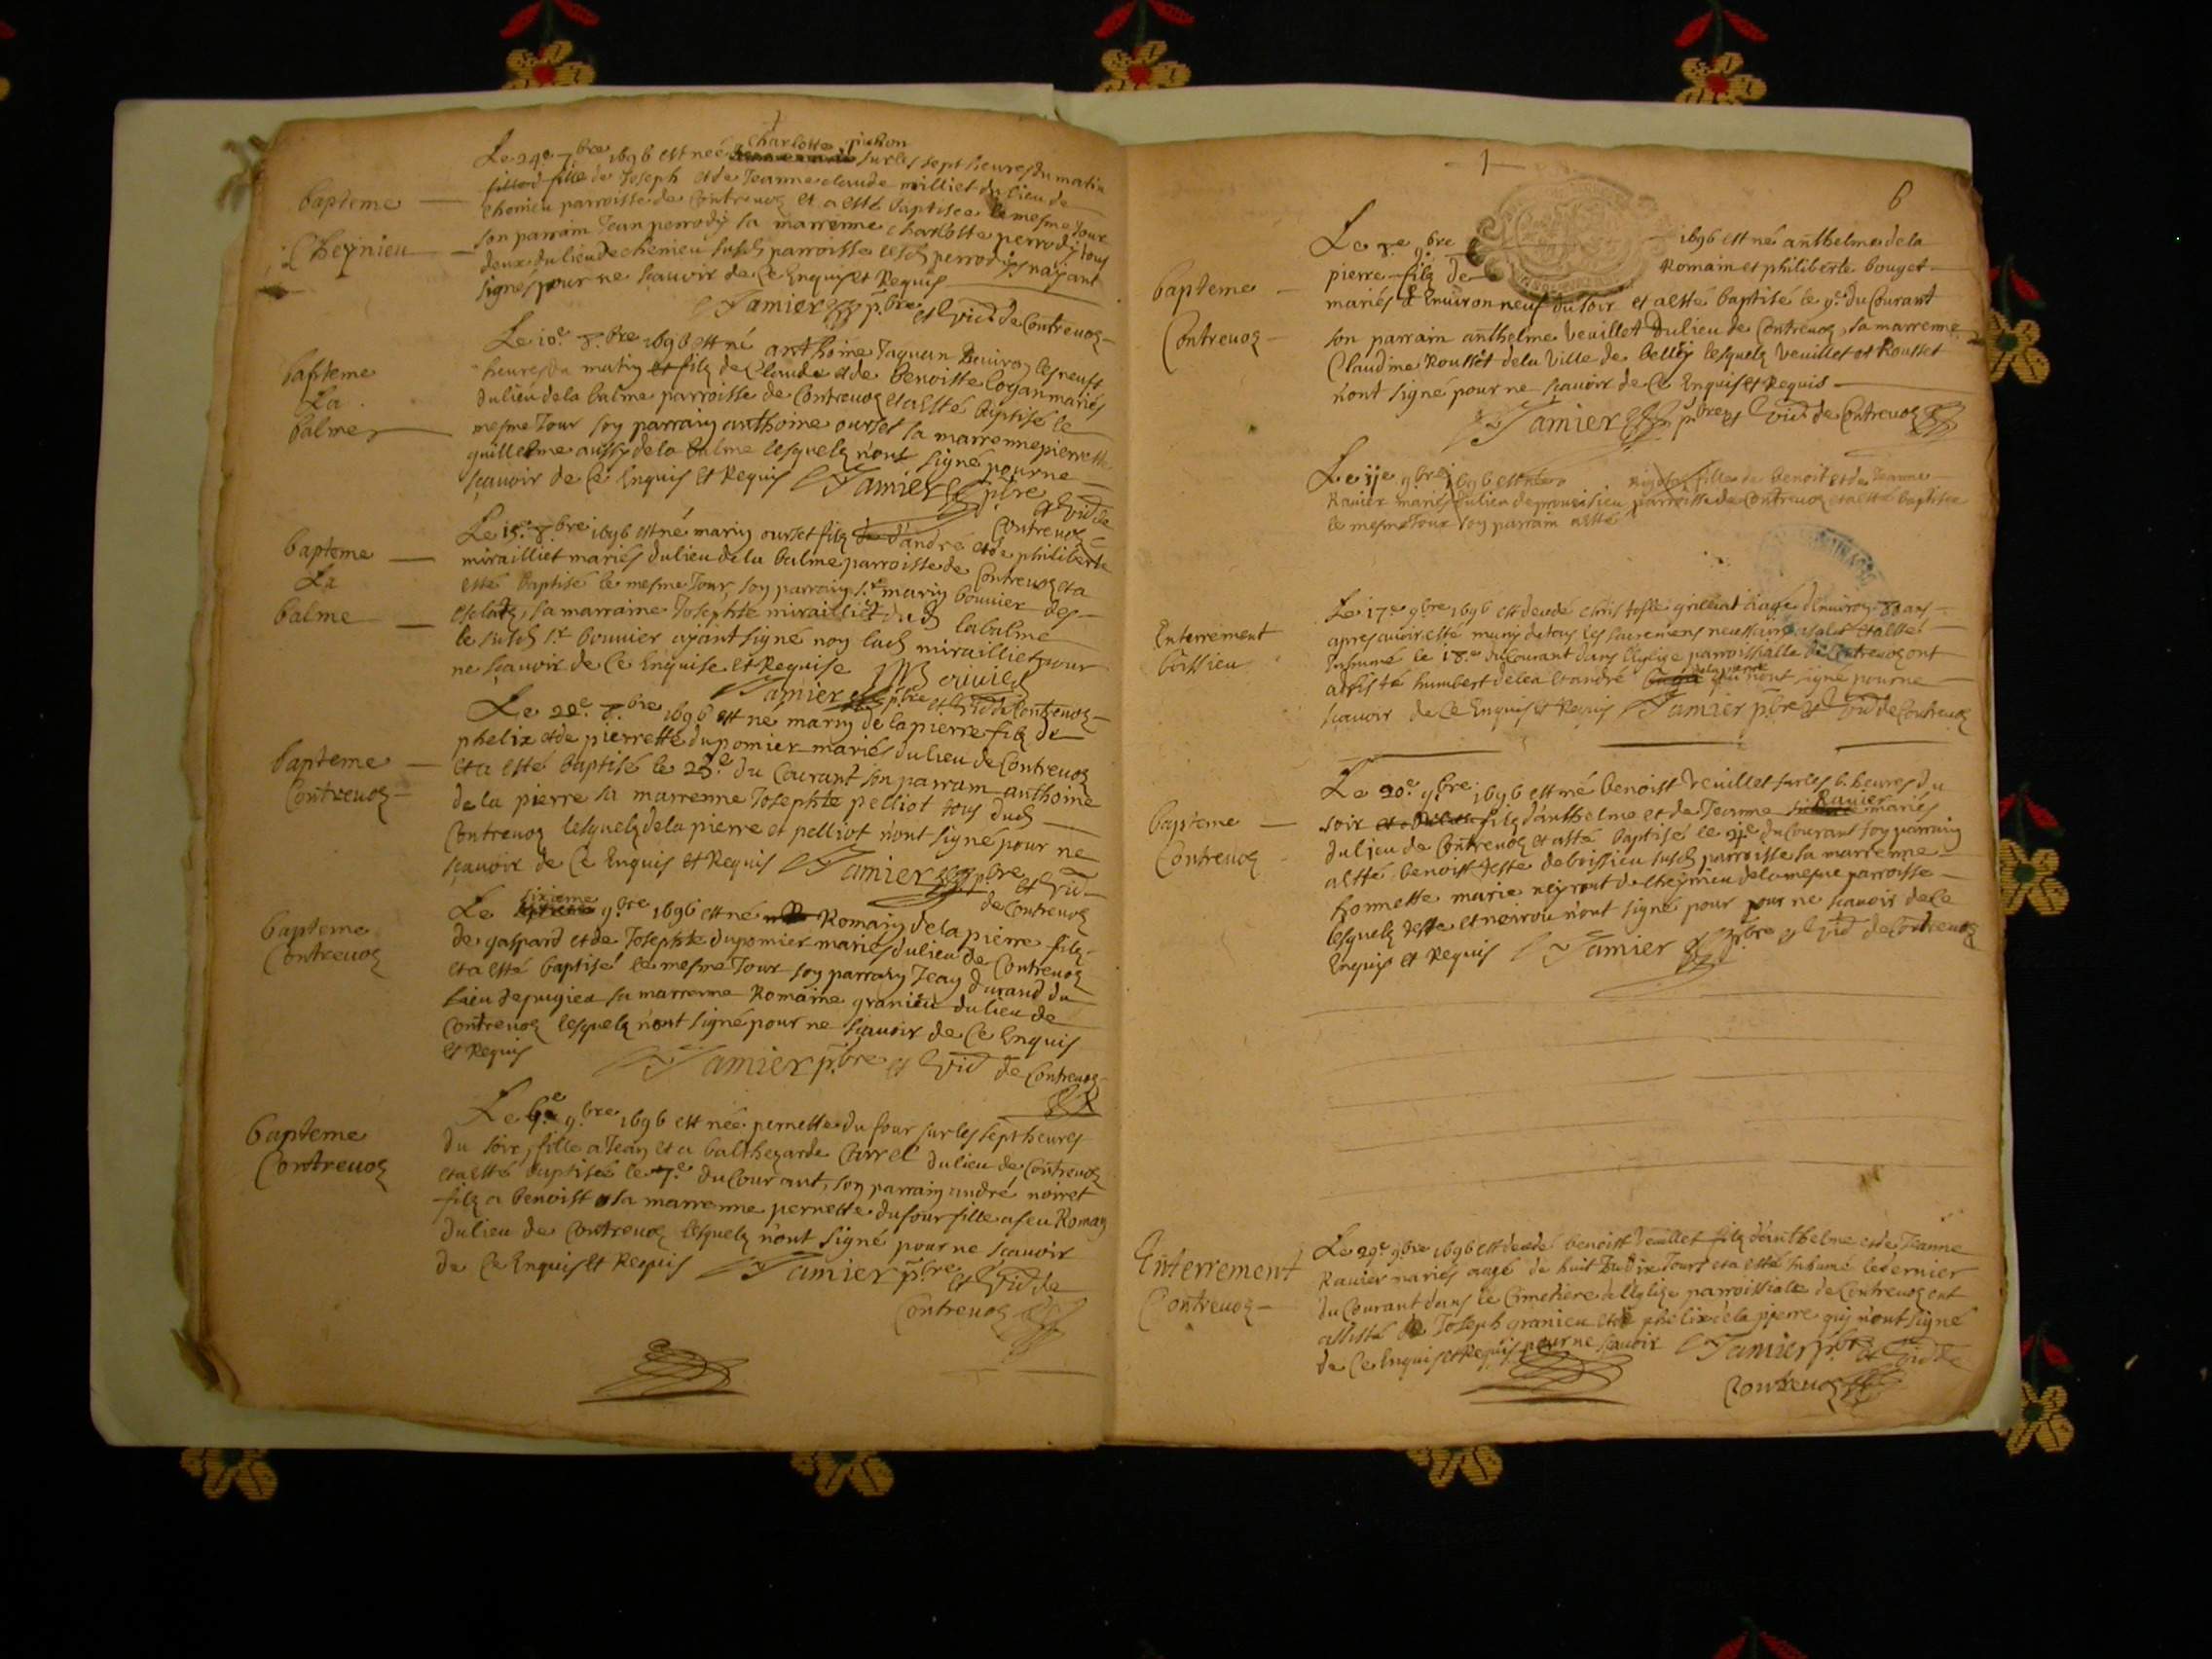 bapteme
Cheynieu
Le 24e 7bre 1696 est née Charlotte pichon sur les sept heures du matin
fille de Joseph et de Jeanne claude milliet du lieu de
chenieu parroisse de Contreuoz et a esté baptisee le mesme Jour
son parrain Jean perrody sa marrenne charlotte perrody tous
deux du lieu de chenieu susd parroisse lesd perrodys n'ayant
signés pour ne scauoir de Ce Enquis et Requis
Jamier pbre et vic de Contreuoz
bapteme
La
balme
Le 10e 8bre 1696 est né anthoine Jaquan Enuiron les neuf
heures du matin et filz de Claude et de benoitte Cogan mariés
du lieu de la balme parroisse de Contreuoz et a esté baptisé le
mesme Jour son parrain anthoine oursel sa marrenne pierrette
guillerme aussy de la balme lesquelz n'ont signé pour ne
scauoir de Ce Enquis et Requis Jamier pbre
et vic de
Contreuoz
bapteme
La
balme
Le 15e 8bre 1696 est né marin oursel filz d'andré et de philiberte
mirailliet mariés du lieu de la balme parroisse de Contreuoz et a
esté baptisé le mesme Jour, son parrain sr marin bouuier des
esclatz, sa marraine Josephte mirailliet dud labalme
le susd sr bouuier ayant signé non lad mirailliet pour
ne scauoir de Ce Enquise et Requise
Jamier pbre et vic de Contreuoz
bapteme
Contreuoz
Le 22e 8bre 1696 est né marin de la pierre filz de
phelix et de pierrette dupomier mariés du lieu de Contreuoz
et a esté baptisé le 23e du Courant son parram anthoine
de la pierre sa marrenne Josephte pelliot tous dud
Contreuoz lesquelz de la pierre et pelliot n'ont signé pour ne
scauoir de Ce Enquis et Requis Jamier pbre et vic
de Contreuoz
bapteme
Contreuoz
Le sixieme 9bre 1696 est né Romain de la pierre filz
de gaspard et de Josephte dupomier mariés du lieu de Contreuoz
et a esté baptisé le mesme Jour son parrain Jean durand du
lieu de pugieu sa marrenne Romaine granieu du lieu de
Contreuoz lesquelz n'ont signé pour ne scauoir de Ce Enquis
et Requis
Jamier pbre et vic de Contreuoz
bapteme
Contreuoz
Le 6e 9bre 1696 est née pernette du four sur les sept heures
du soir, fille a Jean et a balthezarde Carrel du lieu de Contreuoz
et a esté baptisée le 7e du Courant, son parrain andré noiret
filz a benoist sa marrenne pernette du four fille a feu Roman
du lieu de Contreuoz lesquelz n'ont signé pour ne scauoir
de Ce Enquis et Requis Jamier pbre et vic de
Contreuoz
6
bapteme
Contreuoz
Le 9bre 1696 est né anthelme de la
pierre filz de Romain et philiberte bouget
mariés a Enuiron neuf du soir et a esté baptisé le 9e du Courant
son parrain anthelme Veuillet du lieu de Contreuoz, sa marrenne
Claudine Rousset de la Ville de belley lesquelz Veuillet et Rousset
n'ont signé pour ne scauoir de Ce Enquis et Requis
Jamier pbre et vic de Contreuoz
Le 11e 9bre 1696 est née fille de benoit et de Jeanne
Rauier mariés du lieu de preueisieu parroisse de Contreuoz et a esté baptisee
le mesme Jour son parrain a esté
Enterrement
boissieu
Le 17e 9bre 1696 est decedé christofle grilliat aagé d'Enuiron 80 ans
apres auoir esté muny de tous les sacremens necessaires a salut et a esté
Inhumé le 18e du Courant dans l'Eglise parroissialle de Contreuoz ont
assisté humbert delea et andré de la pierre qui n'ont signé pour ne
scauoir de Ce Enquis et Requis Jamier pbre et vic de Contreuoz
bapteme
Contreuoz
Le 20e 9bre 1696 est né benoist Veuillet sur les 6 heures du
soir filz d'anthelme et de Jeanne Rauier mariés
du lieu de Contreuoz et a esté baptisé le 21e du Courant son parrain
a esté benoist teste de boissieu susd parroisse sa marrenne
honnette marie neyrout de cheynieu de la mesme parroisse
lesquelz teste et neirou n'ont signé pour pour ne scauoir de Ce
Enquis et Requis Jamier pbre et vic de Contreuoz
Enterrement
Contreuoz
Le 29e 9bre 1696 est decedé benoist Veuillet filz d'anthelme et de Jeanne
Rauier mariés aagé de huit Ou dix Jours et a esté Inhumé le dernier
du Courant dans le Cimetiere de l'Eglize parroissialle de Contreuoz ont
assisté Joseph granieu et phelix de la pierre quy n'ont signé
de Ce Enquis et Requis pour ne scauoir Jamier pbre et vic de
Contreuoz